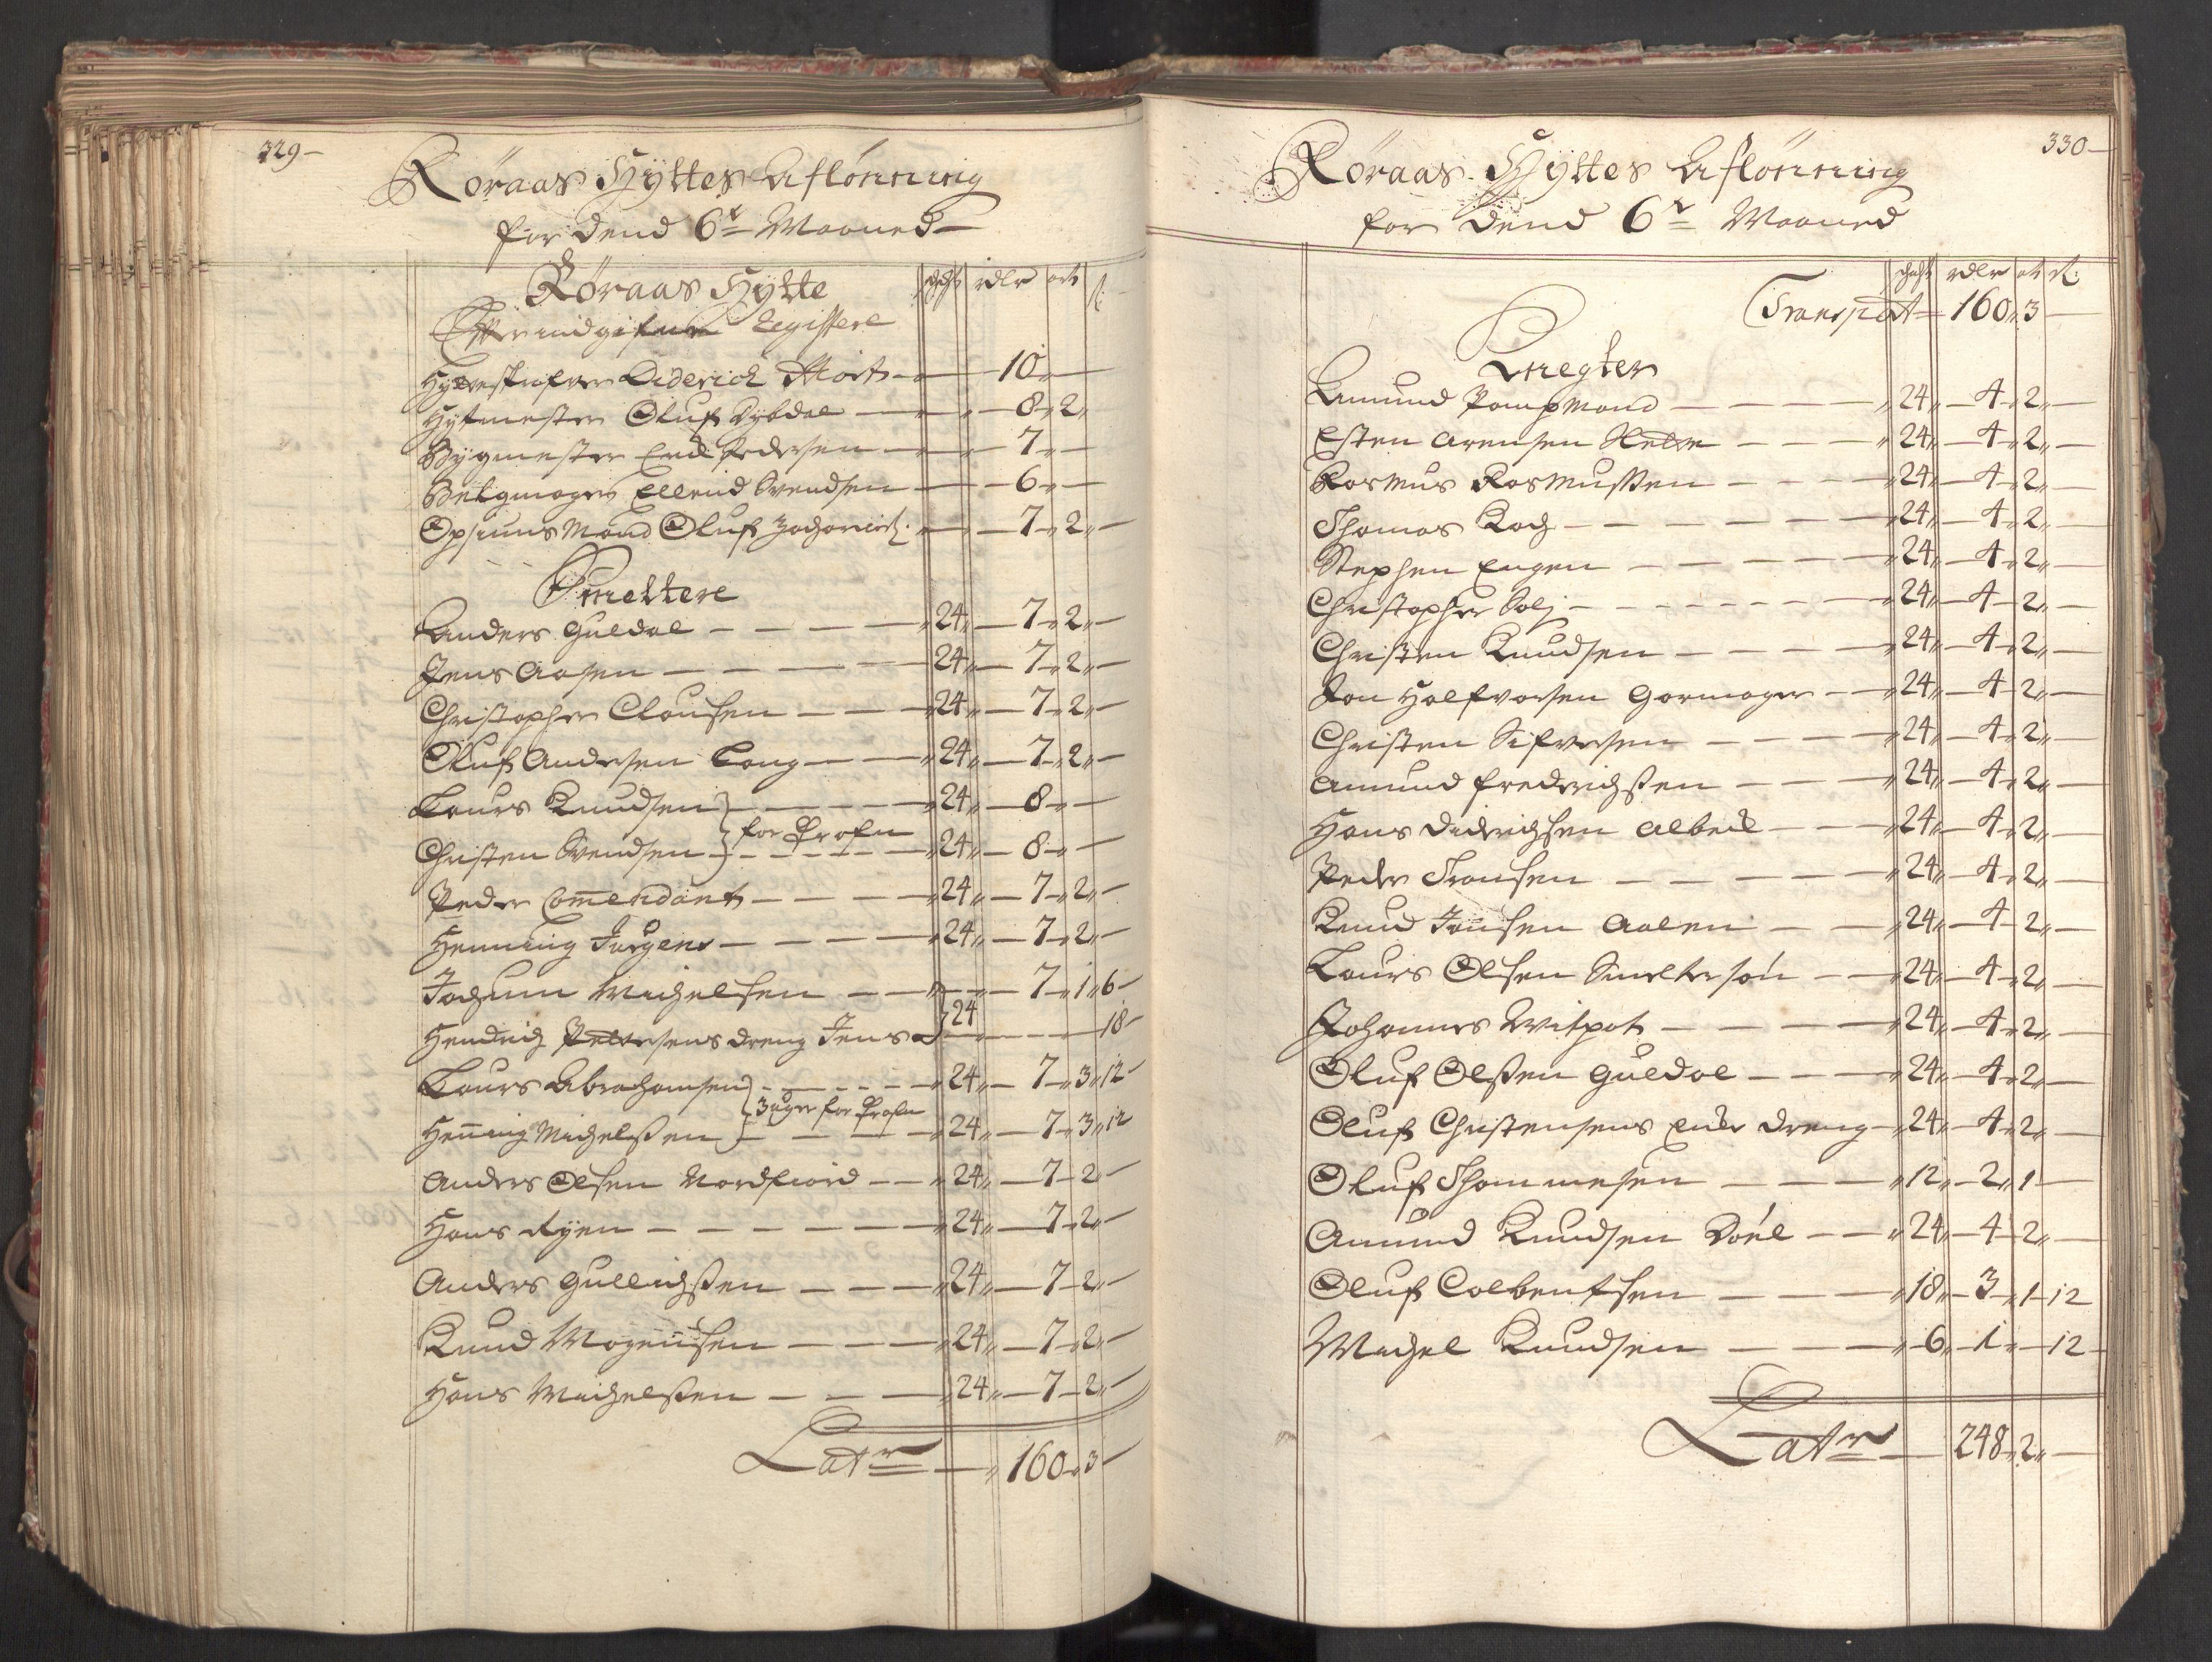 329
Røraas Hyttes Aflønning
for dend 6te Maaned
Røraas Hytte
schf rdlr ort s:
Efter indgifne Register
Hytteskrifver Diderich Mort 10
Hytmester Oluf Dybdal 8 2
Bygmester Erich Pedersen 7
Belgmager Ellend Svendsen 6
Opsiuns Mand Oluf Zachariæs: 7 2
Smeltere
Anders Guldal 24 7 2
Jens Aasen 24 7 2
Christopher Clausen 24 7 2
Oluf Andersen Lang 24 7 2
Laurs Knudsen 24 8
for Profn
Christen Svendsen 24 8
Peder Comendant 24 7 2
Henning Jurgens 24 7 2
Jochum Michelsen 7 1 6
24
Hendrich Petersens dreng Jens 18
Laurs Abrahamsen 24 7 3 12
3 uger for Profn
Hening Michelsen 24 7 3 12
Anders Olsen Nordfiord 24 7 2
Hans Ryen 24 7 2
Anders Gullichsen 24 7 2
Knud Mogensen 24 7 2
Hans Michelsen 24 7 2
Latr 160 3
330
Røraas Hyttes Aflønning
for dend 6te Maaned
schf rdlr ort s:
Transport 160 3
Knegter
Amund Pampmand 24 4 2
Esten Arensen 24 4 2
Rasmus Rasmussen 24 4 2
Thomas Koch 24 4 2
Stephen Engen 24 4 2
Christopher Solj 24 4 2
Christen Knudsen 24 4 2
Jon Halfvorsen Garmager 24 4 2
Christen Sifversen 24 4 2
Amund Fredrichsen 24 4 2
Hans Didrichsen Albech 24 4 2
Peder Transen 24 4 2
Knud Jonsen Aalen 24 4 2
Laurs Olsen Smeltersøn 24 4 2
Johannes Witpot 24 4 2
Oluf Olsen Guldal 24 4 2
Oluf Christensens Ende dreng 24 4 2
Oluf Thommesen 12 2 1
Amund Knudsen Døel 24 4 2
Oluf Colbentsen 18 3 1 12
Michel Knudsen 6 1 12
Latr 248 2